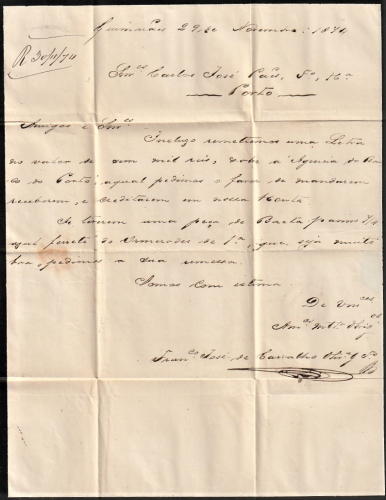 Guimarães 29 de Novembro 1874
R 30/11/74
Snres Carlos José Paes, Fo, &a
Porto
Amigos e Snres
Incluzo remettemos uma Letra
do valor de cem mil reis, sobre a Agencia do Ban
co do Porto, a qual pedimos o favor de mandarem
receberem, e creditarem em nossa Conta.
Se tiverem uma peça de Baeta panno 7/4
azul ferrete de 1.a, que seja muito
boa, pedimos a sua remessa.
Somos com estima
De Vmces
Amos
Franco José de Carvalho